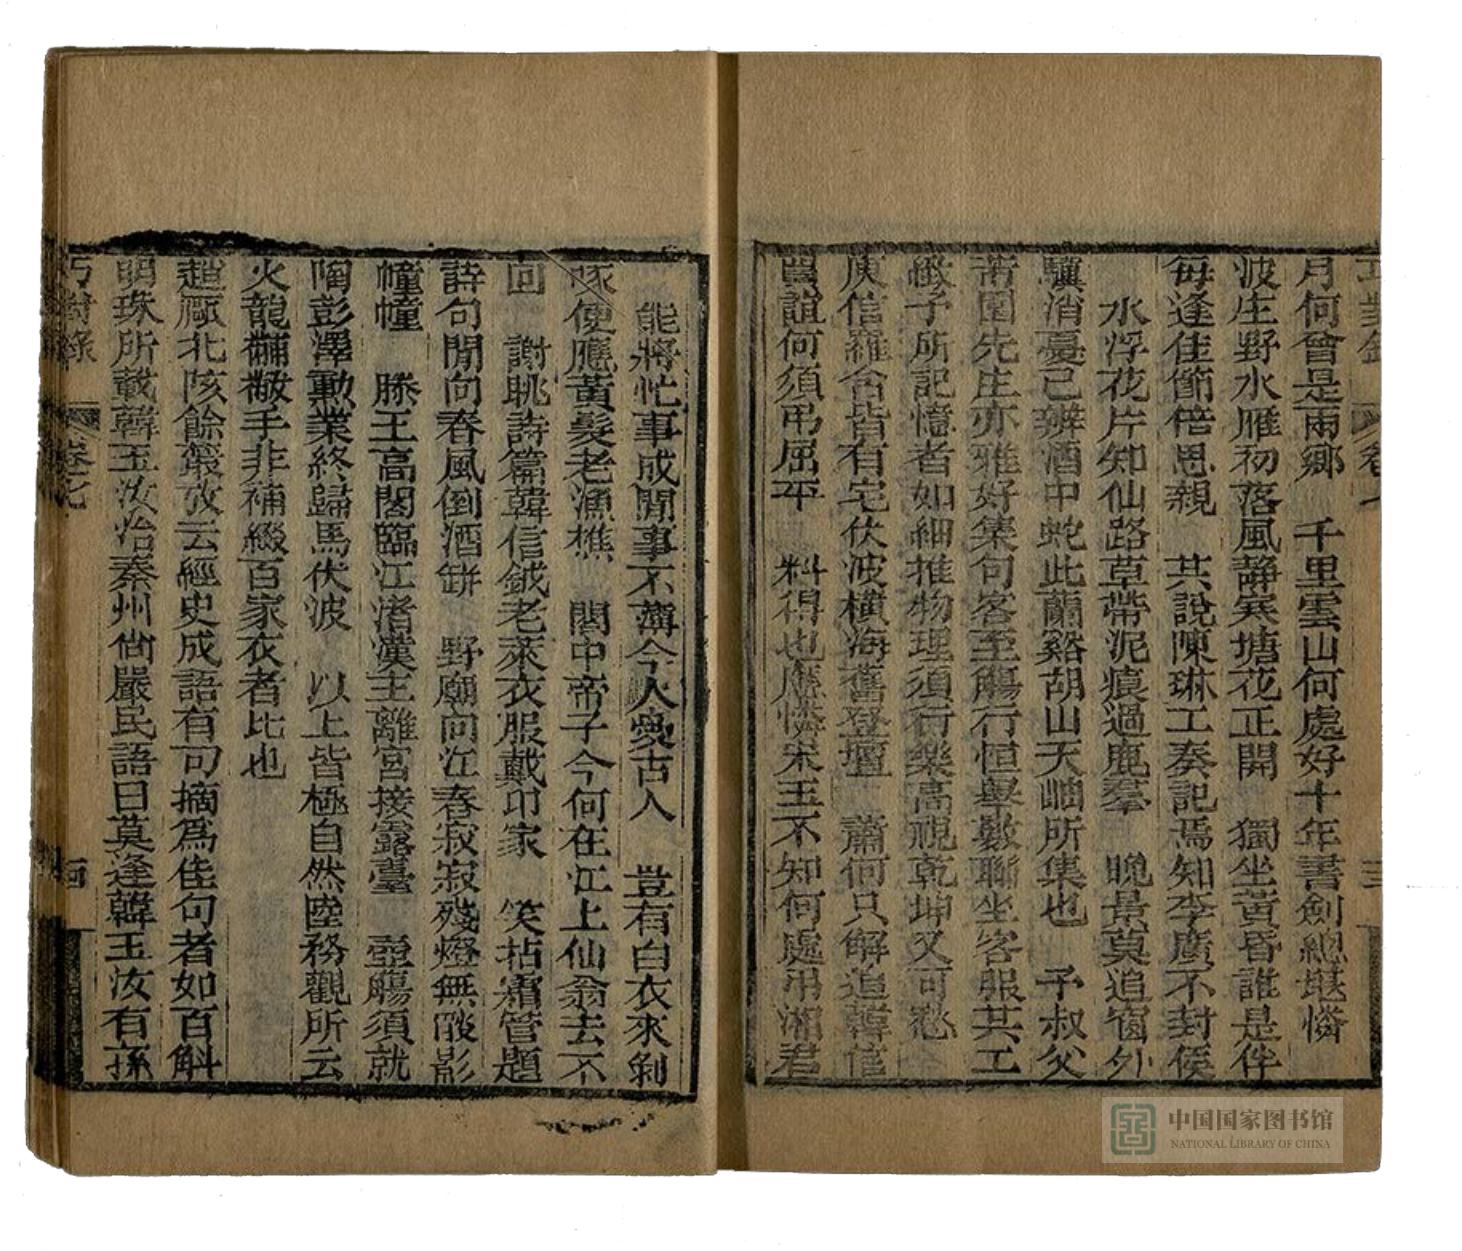 巧對錄 卷七 三
月何曾是兩鄉 千里雲山何處好十年書劍總堪憐
波庄野水雁初落風靜寒塘花正開 獨坐黃昏誰是伴
每逢佳節倍思親 共說陳琳工奏記焉知李廣不封侯
水浮花片知仙路草帶泥痕過鹿羣 晚景莫追窗外
驥消憂已辨酒中蛇此蘭谿胡山天岫所集也 予叔父
芾園先庄亦雅好集句客至觴行恒舉數聯坐客服其工
緻予所記憶者如細推物理須行樂高視乾坤又可愁
庾信羅含皆有宅伏波橫海舊登壇 蕭何只解追韓信
賈誼何須弔屈平 料得也應憐宋玉不知何處弔湘君
能將忙事成閒事不薄今人愛古人 豈有白衣來剝
啄便應黃髮老漁樵 閣中帝子今何在江上仙翁去不
回 謝眺詩篇韓信鉞老萊衣服戴卬家 笑拈霜管題
詩句閒向春風倒酒缾 野廟向江春寂寂殘燈無燄影
幢幢 滕王高閣臨江渚漢主離宮接露臺 壺觴須就
陶彭澤勳業終歸馬伏波 以上皆極自然陸務觀所云
火龍黼黻手非補綴百家衣者比也
趙甌北陔餘叢攷云經史成語有可摘爲佳句者如百斛
明珠所載韓玉汝治秦州尙嚴民語曰莫逢韓玉汝有孫
巧對錄 卷七 四
中国国家图书馆
NATIONAL LIBRARY OF CHINA